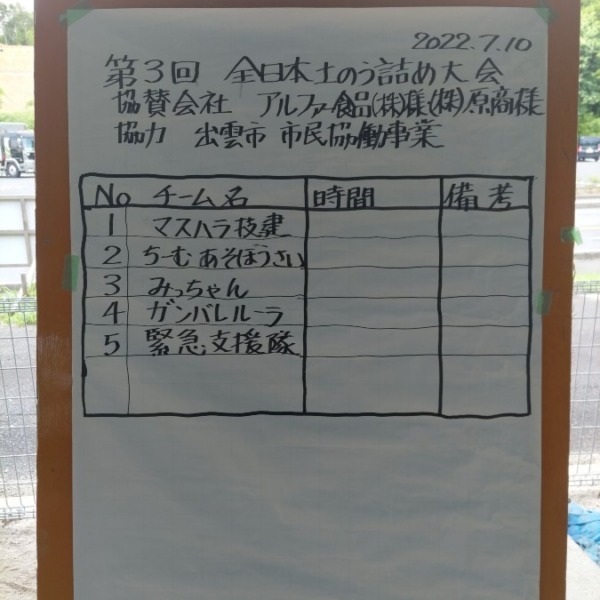 2022.7.10
第3回 全日本土のう詰め大会
協賛会社 アルファー食品(株)様(株)原商様
協力 出雲市 市民協働事業
No チーム名 時間 備考
1 マスハラ技建
2 ちーむあそぼうさい
3 みっちゃん
4 ガンバレルーラ
5 緊急支援隊